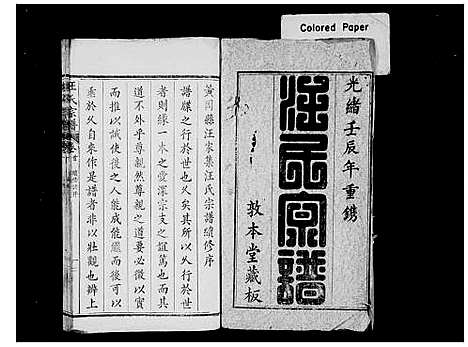 Colored Paper
光緒壬辰年重鐫
汪氏宗譜
敦本堂藏板
黃岡縣汪家集汪氏宗譜續修序
譜牒之行於世也久矣其所以久行於世
者則緣一本之愛深宗支之誼篤也而其
道不外乎尊親然尊親之道要必徵以實
而推以誠使後之人能成能繼而後可以
垂於久自來作是譜者非以壯觀也辨上
汪氏宗譜
卷首